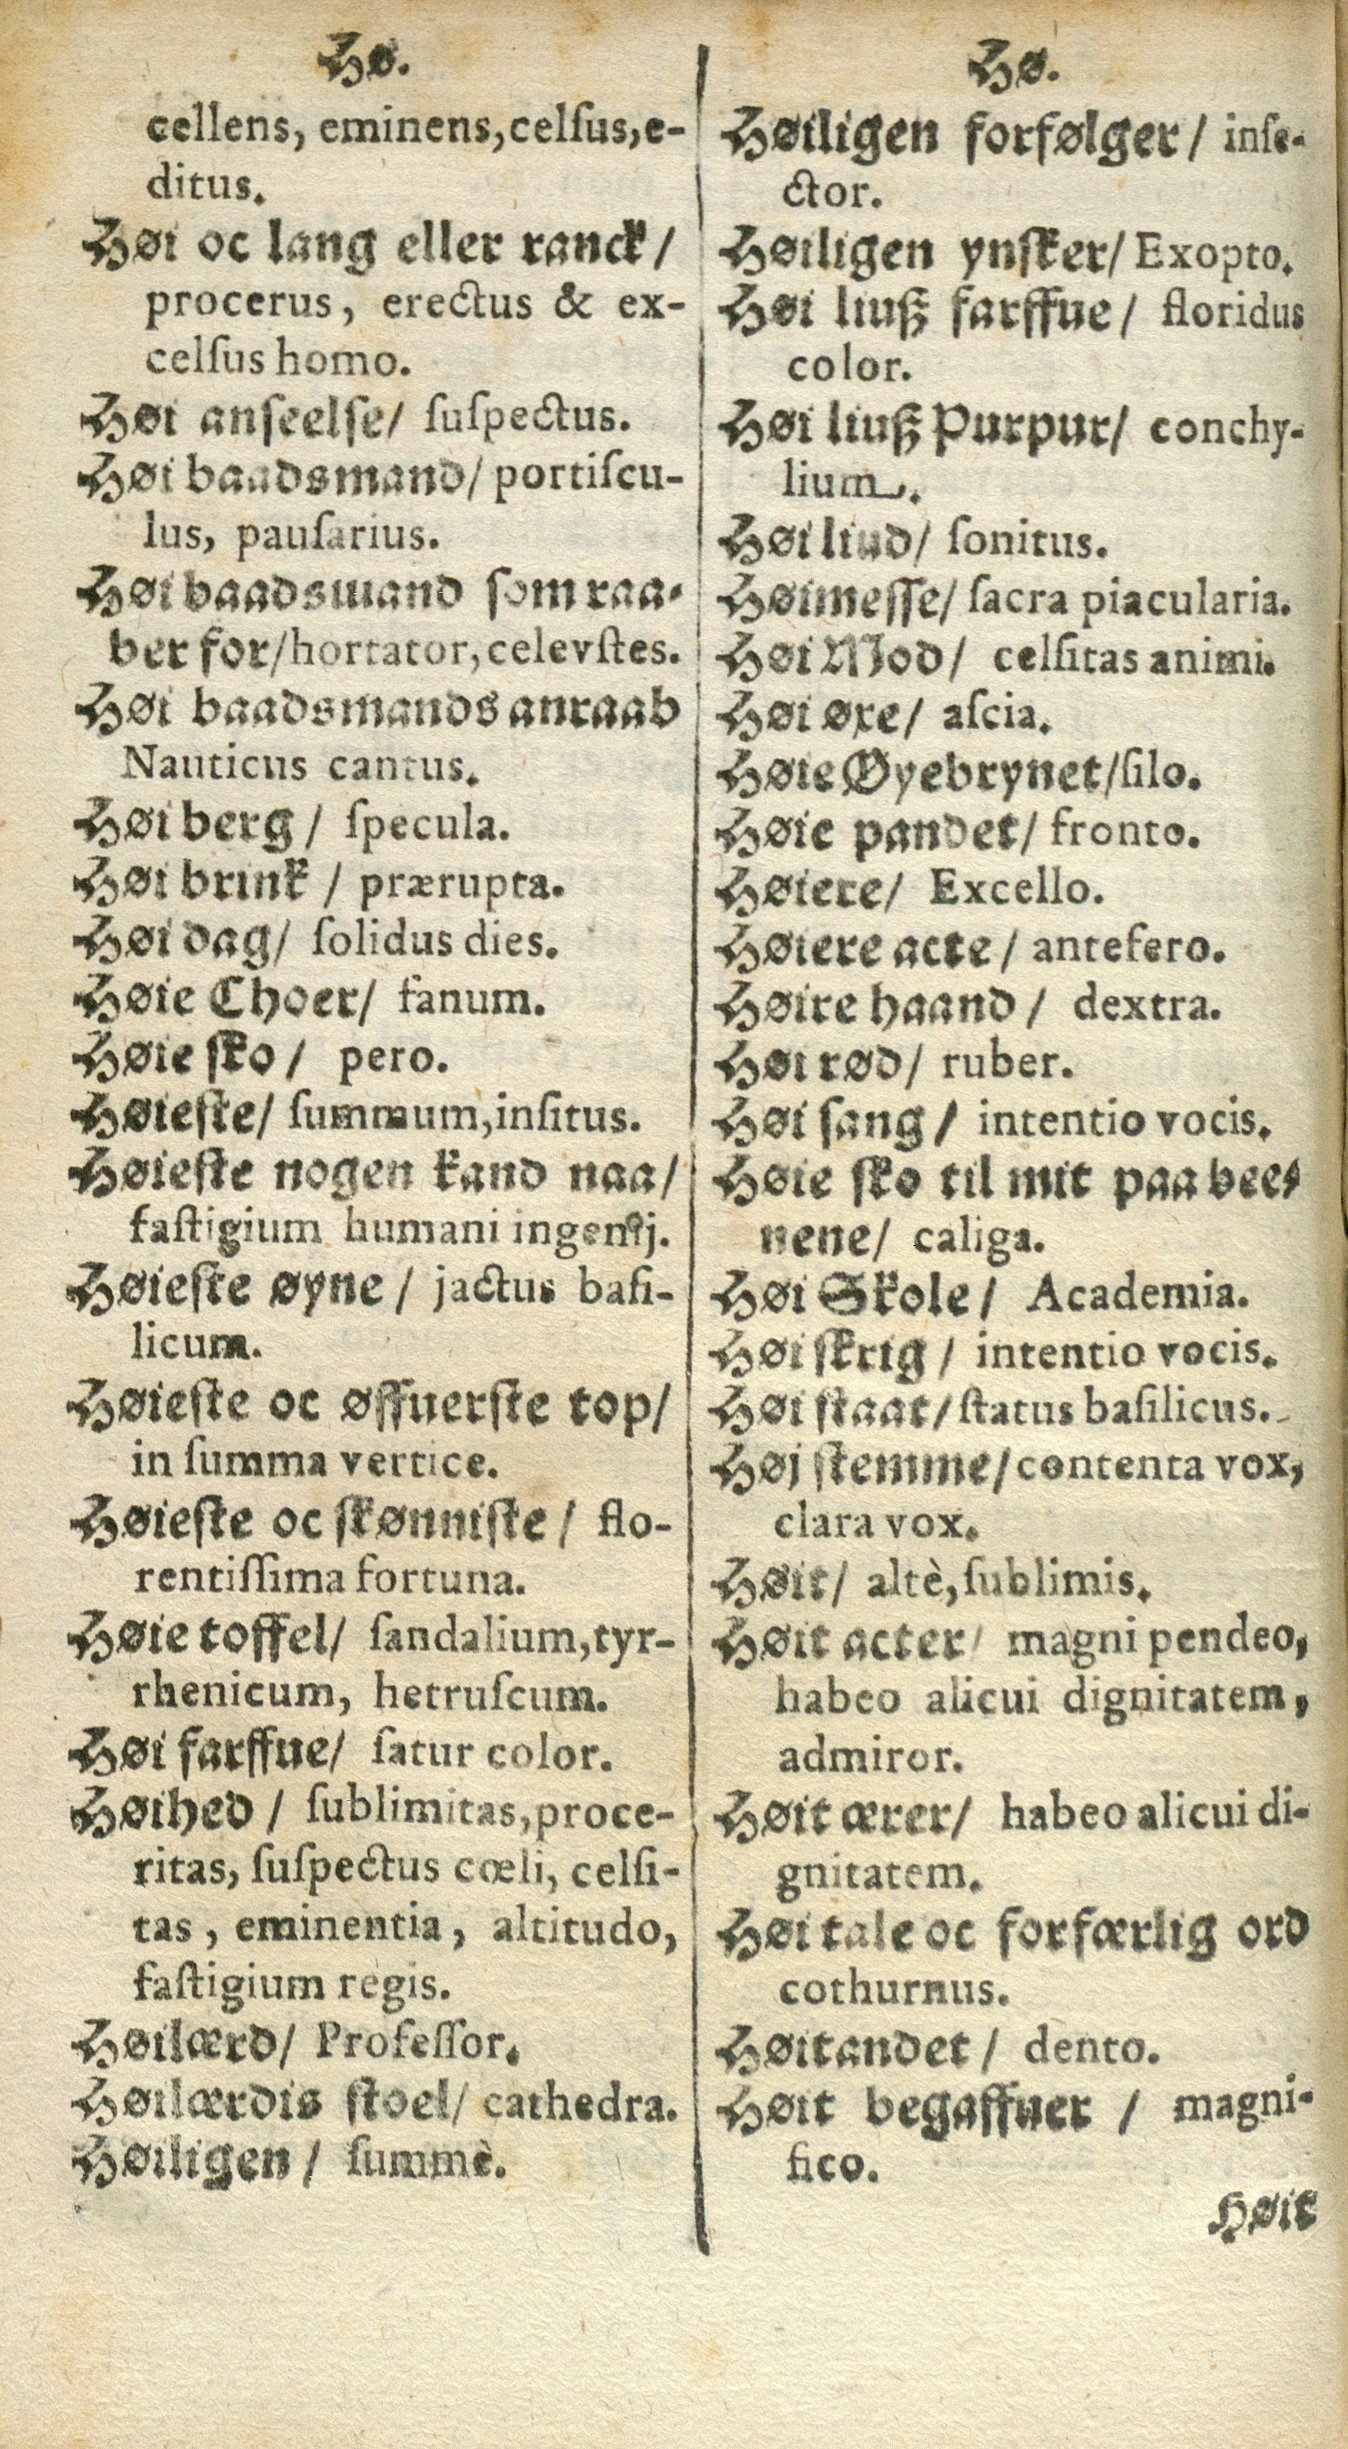 Hø.
cellens, eminens, celſus, e-
ditus.
Høi oc lang eller ranck/
procerus, erectus & ex-
celſus homo.
Høi anſeelſe/ ſuſpectus.
Høi baadsmand/ portiſcu-
lus, pauſarius.
Høi baadsmand ſom raa-
ber for/ hortator, celevſtes.
Høi baadsmands anraab
Nauticus cantus.
Høi berg/ ſpecula.
Høi brink/ prærupta.
Høi dag/ ſolidus dies.
Høie Choer/ fanum.
Høie ſko/ pero.
Høieſte/ ſummum, inſitus.
Høieſte nogen kand naa/
faſtigium humani ingenij.
Høieſte øyne/ jactus baſi-
licum.
Høieſte oc øffuerſte top/
in ſumma vertice.
Høieſte oc ſkønniſte/ flo-
rentiſſima fortuna.
Høie toffel/ ſandalium, tyr-
rhenicum, hetruſcum.
Høi farffue/ ſatur color.
Høihed/ ſublimitas, proce-
ritas, ſuſpectus cœli, celſi-
tas, eminentia, altitudo,
faſtigium regis.
Høilærd/ Profeſſor.
Høilærdis ſtoel/ cathedra.
Høiligen/ ſummè.
Hø.
Høiligen forfølger/ inſe-
ctor.
Høiligen ynſker/ Exopto.
Høi liuß farffue/ floridus
color.
Høi liuß Purpur/ conchy-
lium.
Høi liud/ ſonitus.
Høimeſſe/ ſacra piacularia.
Høi Mod/ celſitas animi.
Høi øxe/ aſcia.
Høie Øyebrynet/ ſilo.
Høie pandet/ fronto.
Høiere/ Excello.
Høiere acte/ antefero.
Høire haand/ dextra.
Høi rød/ ruber.
Høi ſang/ intentio vocis.
Høie ſko til mit paa bee-
nene/ caliga.
Høi Skole/ Academia.
Høi ſkrig/ intentio vocis.
Høi ſtaat/ ſtatus baſilicus.
Høj ſtemme/ contenta vox,
clara vox.
Høit/ altè, ſublimis.
Høit acter/ magni pendeo,
habeo alicui dignitatem,
admiror.
Høit ærer/ habeo alicui di-
gnitatem.
Høi tale oc forfærlig ord
cothurnus.
Høitandet/ dento.
Høit begaffuer/ magni-
fico.
Høit